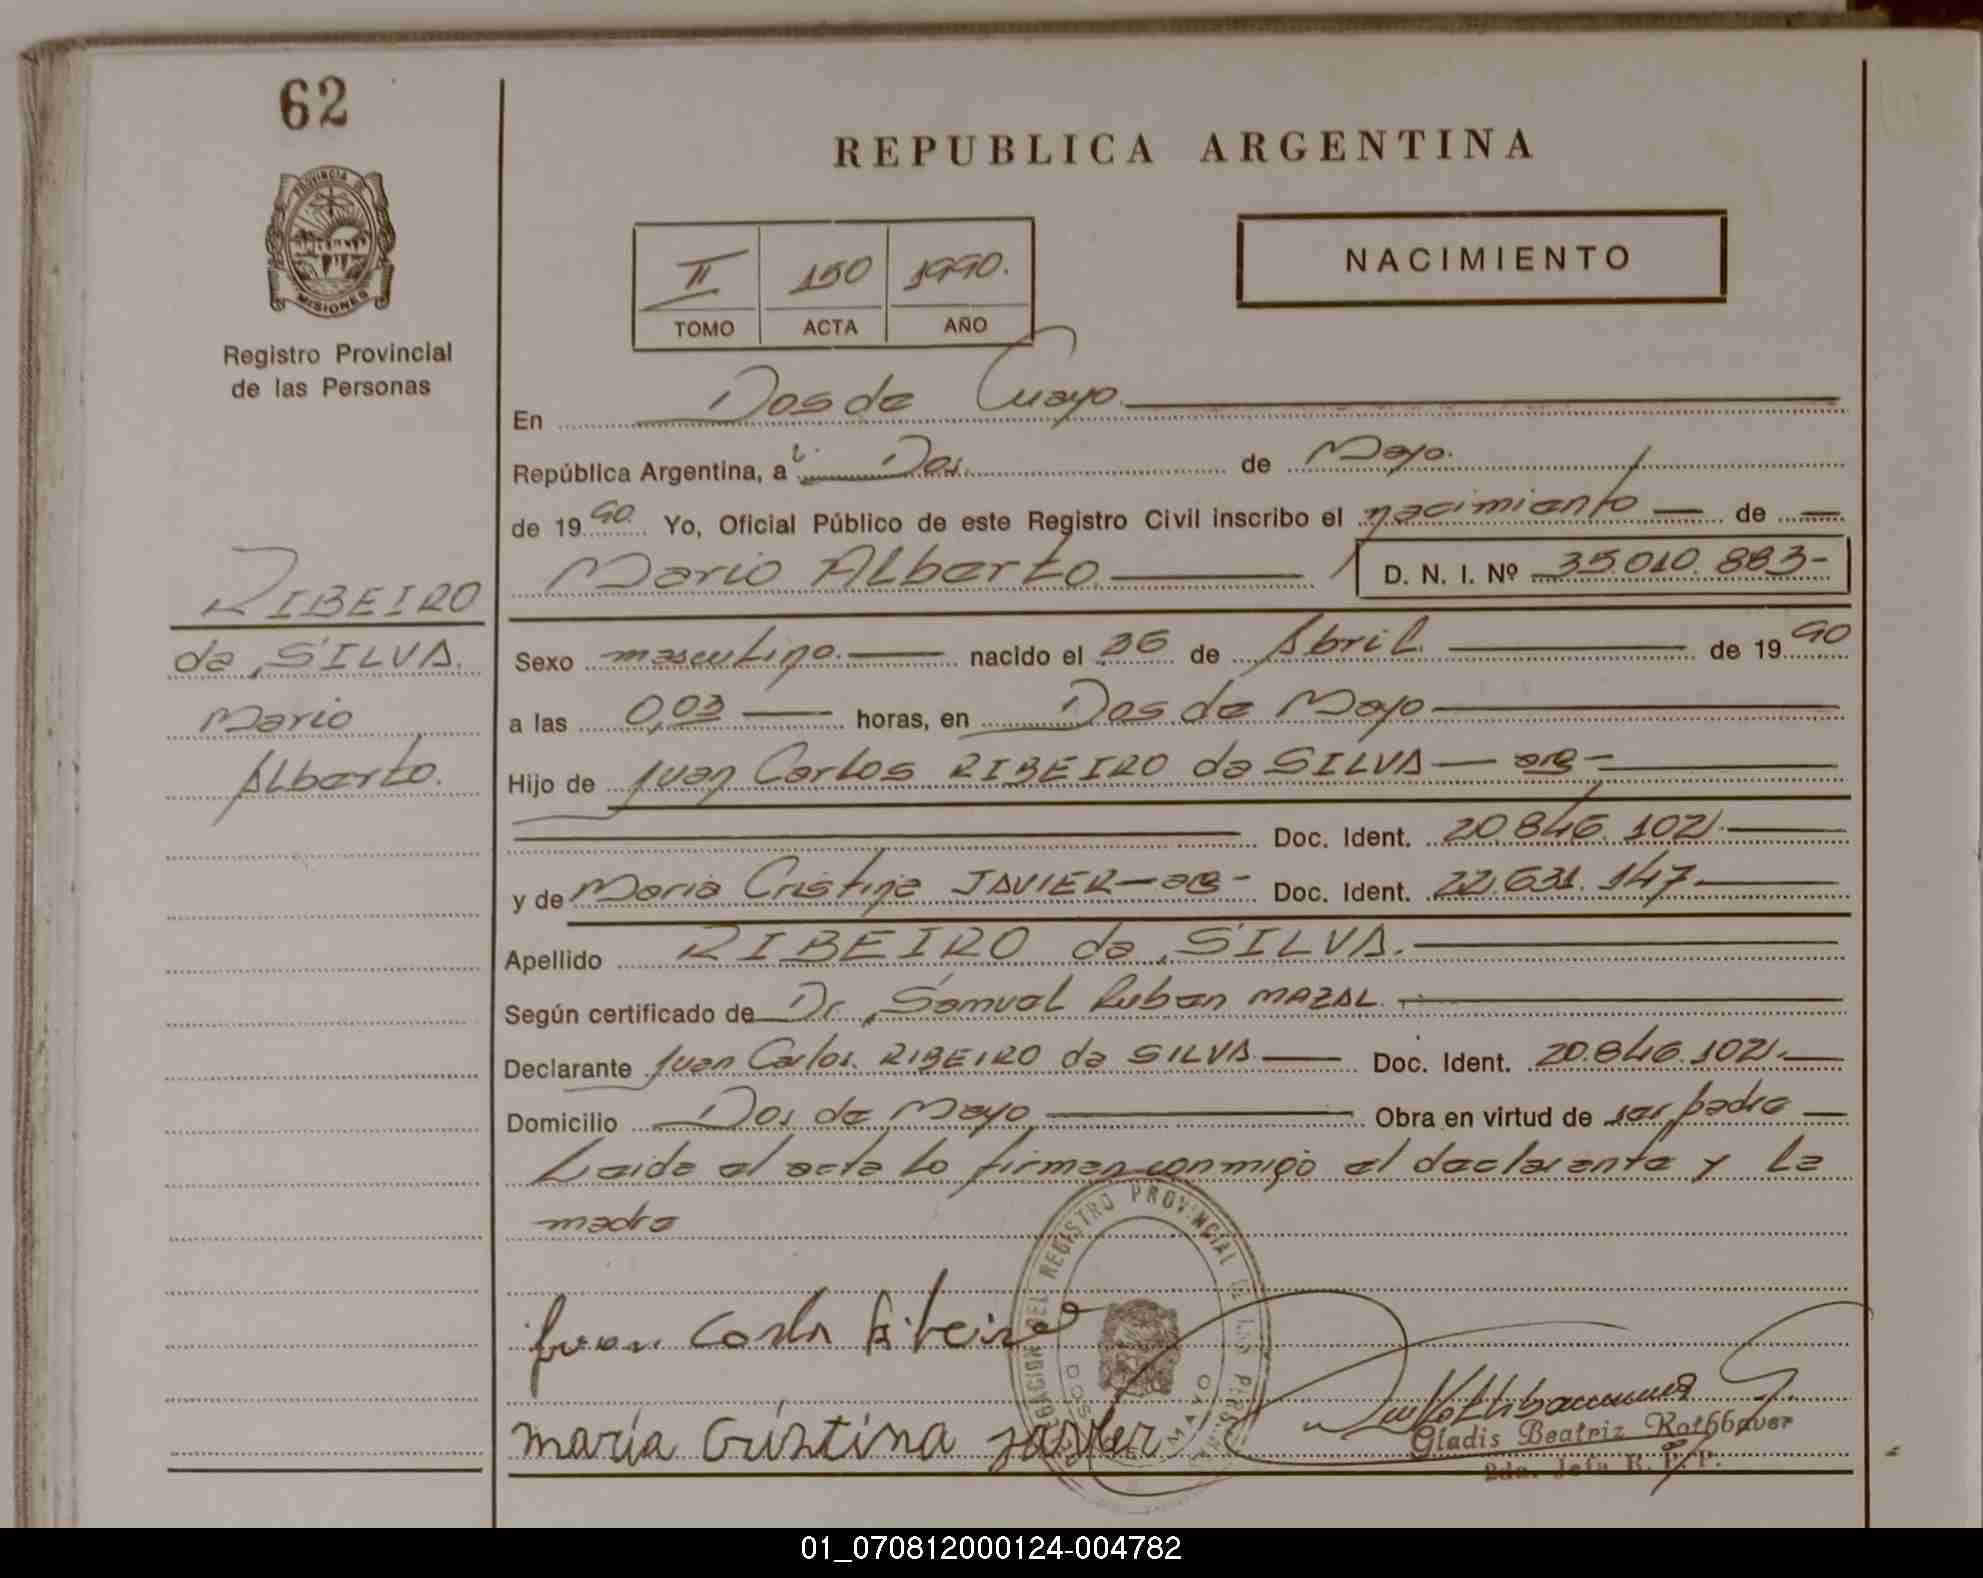 62
PROVINCIA DE
MISIONES
Registro Provincial
de las Personas
RIBEIRO
da SILVA.
Mario
Alberto.
REPUBLICA ARGENTINA
NACIMIENTO
II 150 1990.
TOMO ACTA AÑO
En Dos de Mayo
República Argentina, a Dos de Mayo.
de 1990. Yo, Oficial Público de este Registro Civil inscribo el nacimiento de
Mario Alberto. D. N. I. Nº 35.010.883-
Sexo masculino. nacido el 26 de Abril. de 1990
a las 0,03 horas, en Dos de Mayo
Hijo de Juan Carlos RIBEIRO da SILVA - arg -
Doc. Ident. 20.846.102.
y de Maria Cristina JAVIER - arg - Doc. Ident. 22.631.147
Apellido RIBEIRO da SILVA.
Según certificado de Dr. Samuel Ruben MAZAL.
Declarante Juan Carlos RIBEIRO da SILVA Doc. Ident. 20.846.102.
Domicilio Dos de Mayo Obra en virtud de ser padre
Leida el acta lo firman conmigo el declarante y la
madre
DELEGACION DEL REGISTRO PROVINCIAL DE LAS PERSONAS
DOS DE MAYO
Juan Carlos Ribeiro
maría Cristina javier
Gladis Beatriz Rothbauer
2da. Jefa R. P. P.
01_070812000124-004782